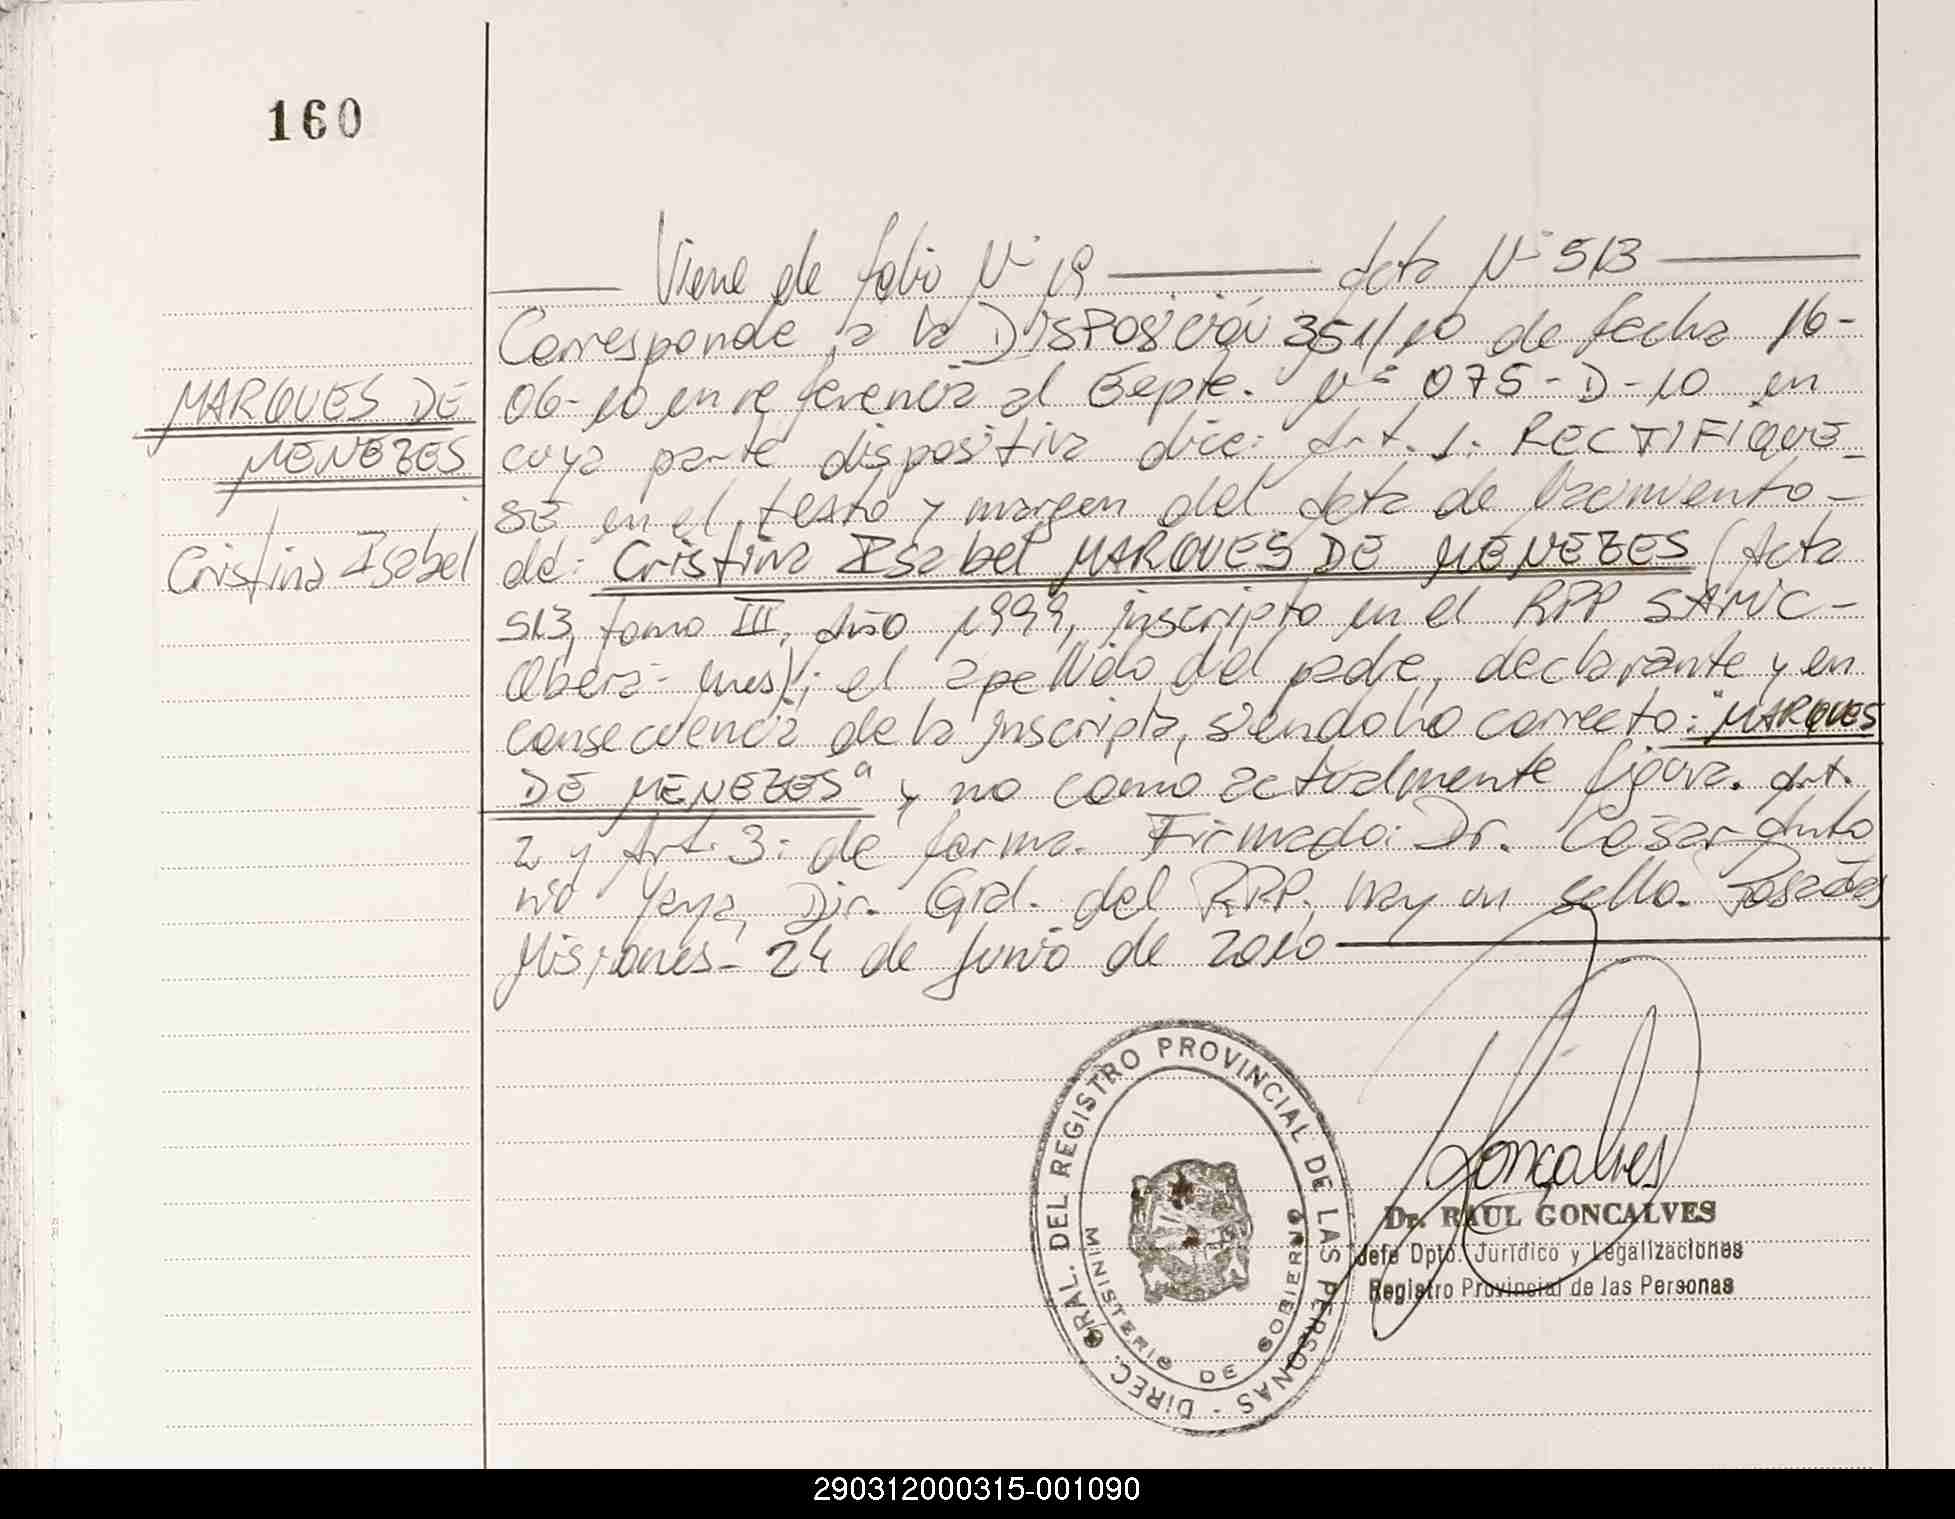 160
Viene de folio Nº 19 Acta Nº 513
Corresponde a la DISPOSICIÓN 351/10 de fecha 16-
MARQUES DE
06-10 en referencia al Expte. Nº 075-D-10 en
MENEZES
cuya parte dispositiva dice: Art. 1: RECTIFIQUE_
SE en el texto y margen del Acta de Nacimiento-
Cristina Isabel
de: Cristina Isabel MARQUES DE MENEZES (Acta
513, tomo III, Año 1999, inscripto en el RPP SAMIC-
Oberá- Mnes); el apellido del padre, declarante y en
consecuencia de la inscripta, siendo lo correcto: "MARQUES
DE MENEZES" y no como actualmente figura. Art.
2 y Art. 3: de forma. Firmado: Dr. César Anto
nio Yaya, Dir. Gral. del RPP, hay un sello. Posadas
Misiones- 24 de Junio de 2010
DIREC. GRAL. DEL REGISTRO PROVINCIAL DE LAS PERSONAS -
MINISTERIO DE GOBIERNO
Gonçalves
Dr. RAUL GONCALVES
Jefe Dpto. Jurídico y Legalizaciones
Registro Provincial de las Personas
290312000315-001090